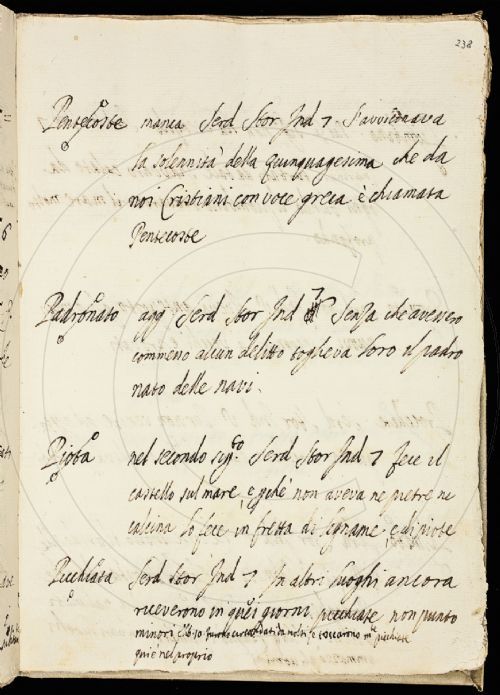 238
Pentecoste manca Serd Stor Ind 7 s'avvicinava
la solennità della quinquagesima che da
noi Cristiani con voce greca è chiamata
Pentecoste
Padronato agg Serd Stor Ind 7 Senza che avessero
commeno alcun delitto toglieva loro il padro
nato delle navi.
Piota nel secondo sig.to Serd Stor Ind 7 fece il
castello sul mare, e pchè non aveva ne pietre ne
calcina lo fece in fretta di legname, e di piote
Picchiata Serd Stor Ind 7 In altri luoghi ancora
riceverono in quei giorni picchiate non punto
minori
qui è nel proprio